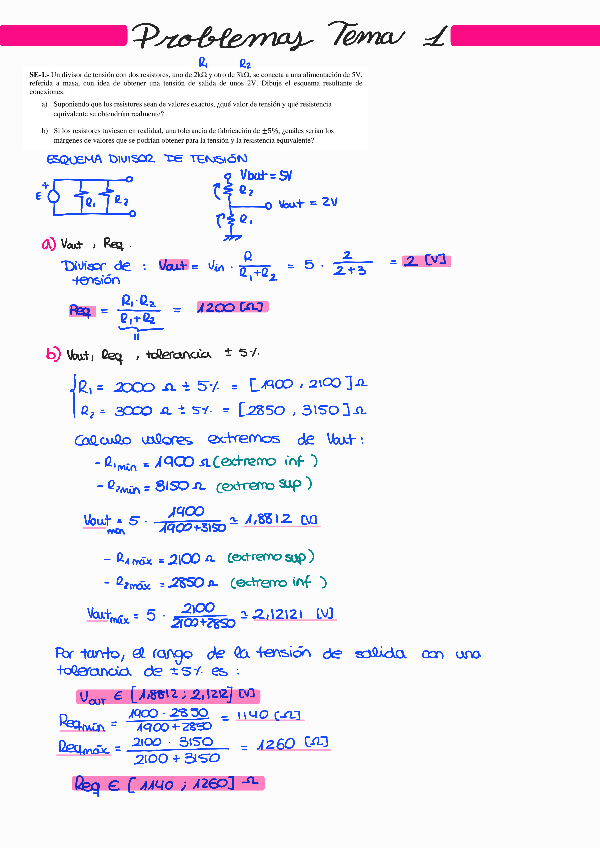 Problemas Tema 1
R1 R2
SE-1.- Un divisor de tensión con dos resistores, uno de 2kΩ y otro de 3kΩ, se conecta a una alimentación de 5V,
referida a masa, con idea de obtener una tensión de salida de unos 2V. Dibuje el esquema resultante de
conexiones.
a) Suponiendo que los resistores sean de valores exactos, ¿qué valor de tensión y qué resistencia
equivalente se obtendrían realmente?
b) Si los resistores tuviesen en realidad, una tolerancia de fabricación de ±5%, ¿cuáles serían los
márgenes de valores que se podrían obtener para la tensión y la resistencia equivalente?
ESQUEMA DIVISOR DE TENSIÓN
+ E R1 R2
Vbat = 5V
R2
Vout = 2V
R1
a) Vout, Req.
Divisor de tensión : Vout = Vin · R / (R1+R2) = 5 · 2 / (2+3) = 2 [V]
Req = R1·R2 / (R1+R2) = 1200 [Ω]
11
b) Vout, Req, tolerancia ± 5%
R1 = 2000 Ω ± 5% = [1900, 2100] Ω
R2 = 3000 Ω ± 5% = [2850, 3150] Ω
Calculo valores extremos de Vout:
- R1mín = 1900 Ω (extremo inf)
- R2mín = 3150 Ω (extremo sup)
Vout mín = 5 · 1900 / (1900+3150) ≃ 1,8812 [V]
- R1máx = 2100 Ω (extremo sup)
- R2máx = 2850 Ω (extremo inf)
Vout máx = 5 · 2100 / (2100+2850) ≃ 2,12121 [V]
Por tanto, el rango de la tensión de salida con una
tolerancia de ±5% es:
VOUT ∈ [1,8812 ; 2,1212] [V]
Reqmín = 1900 · 2850 / (1900 + 2850) = 1140 [Ω]
Reqmáx = 2100 · 3150 / (2100 + 3150) = 1260 [Ω]
Req ∈ [1140 ; 1260] Ω